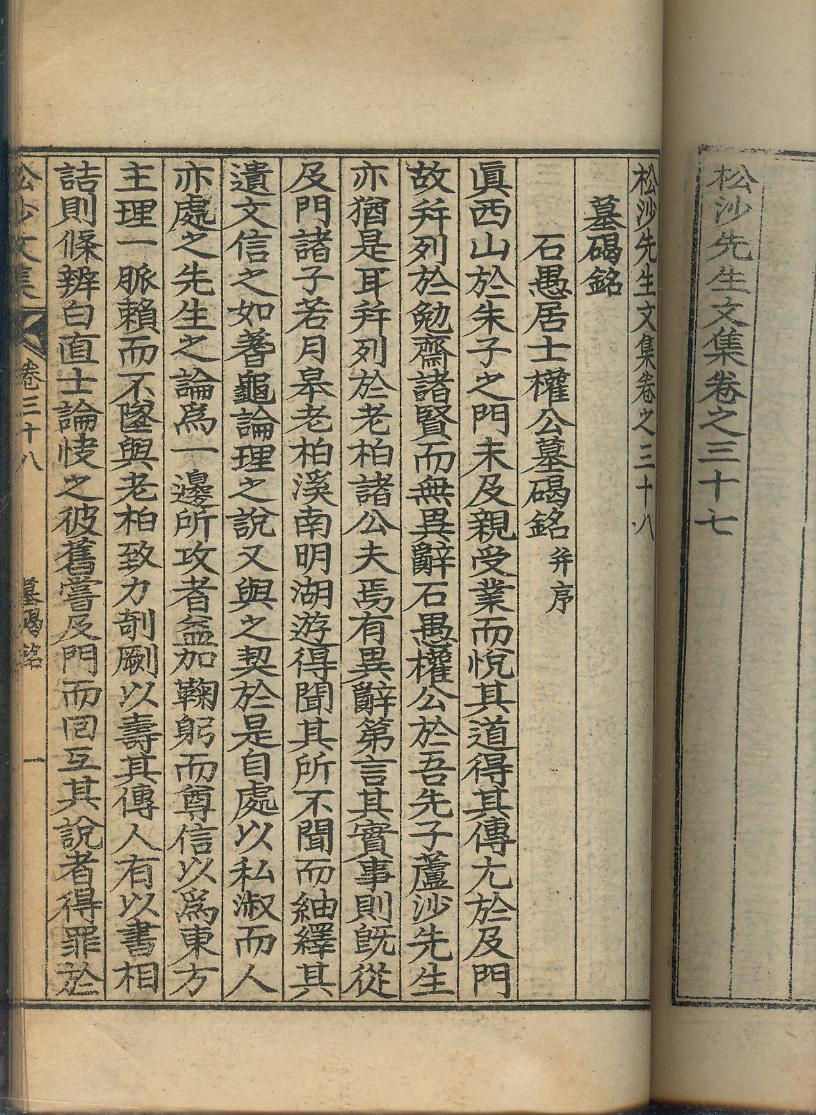 松沙先生文集卷之三十七
松沙先生文集卷之三十八
墓碣銘
石愚居士權公墓碣銘 并序
眞西山於朱子之門未及親受業而悅其道得其傳尤於及門
故并列於勉齋諸賢而無異辭石愚權公於吾先子蘆沙先生
亦猶是耳并列於老柏諸公夫焉有異辭第言其實事則旣從
及門諸子若月皋老柏溪南明湖游得聞其所不聞而紬繹其
遺文信之如蓍龜論理之說又與之契於是自處以私淑而人
亦處之先生之論爲一邊所攻者益加鞠躬而尊信以爲東方
主理一脈賴而不墜與老柏致力剞劂以壽其傳人有以書相
詰則條辨白直士論快之彼舊嘗及門而回互其說者得罪於
松沙文集 卷三十八 墓碣銘 一